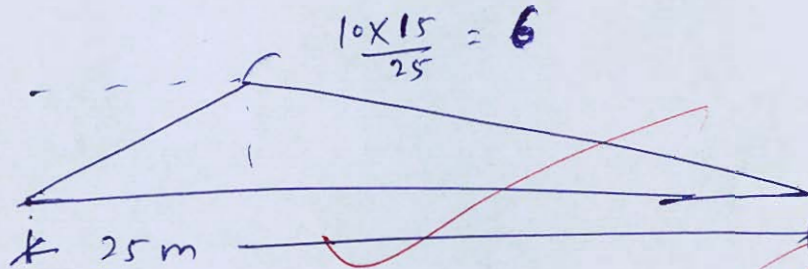 10×15/25 = 6
25 m